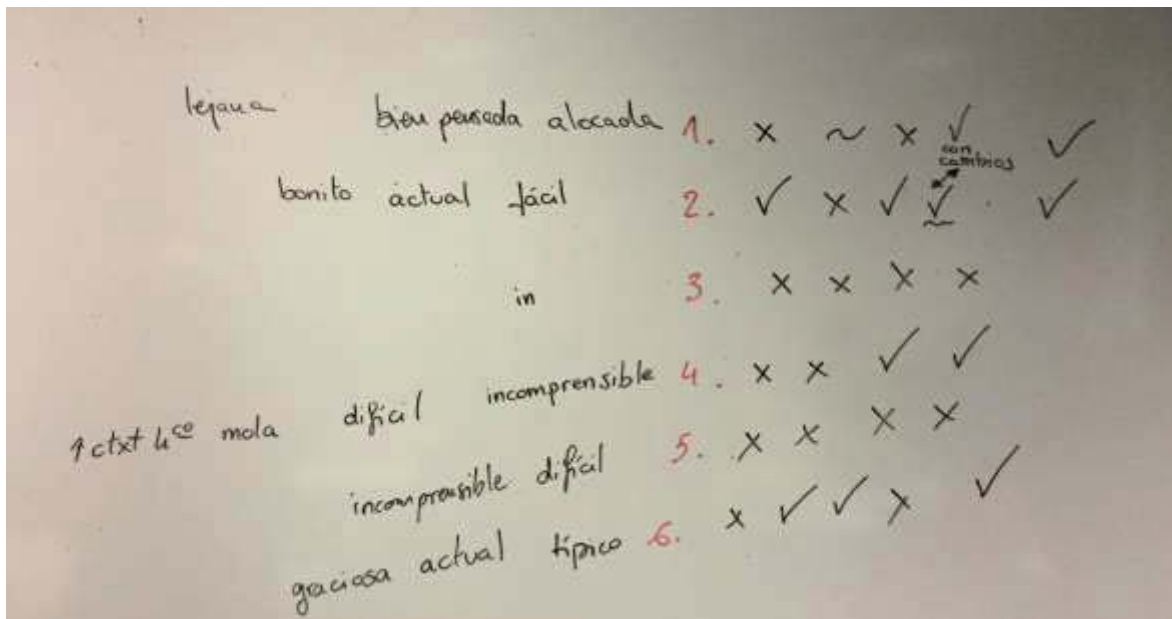 lejana bien pensada alocada 1. x ~ x ✓ ✓
con cambios
bonito actual fácil 2. ✓ x ✓ ✓ ✓
~
in 3. x x x x
↑ ctxt hco mola difícil incomprensible 4. x x ✓ ✓
incomprensible difícil 5. x x x x
graciosa actual típico 6. x ✓ ✓ x ✓